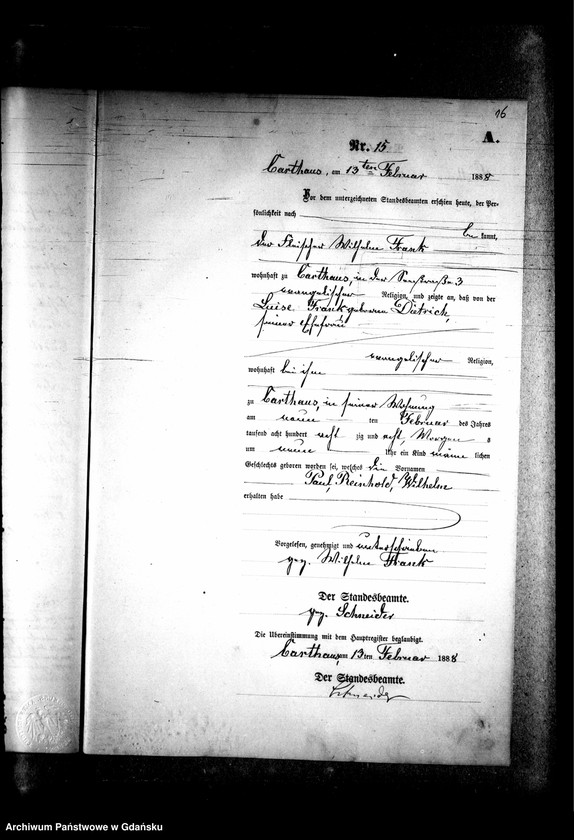 16
A.
Nr. 15
Carthaus, am 13ten Februar 1888
Vor dem unterzeichneten Standesbeamten erschien heute, der Per-
sönlichkeit nach
be kannt,
der Fleischer Wilhelm Frank
wohnhaft zu Carthaus, in der 3
evangelischer Religion, und zeigte an, daß von der
Luise Frank geborene Dietrich,
seiner Ehefrau
evangelischer Religion,
wohnhaft bei ihm
zu Carthaus, in seiner Wohnung
am neun ten Februar des Jahres
tausend acht hundert acht zig und acht, Morgens
um neun Uhr ein Kind männ lichen
Geschlechts geboren worden sei, welches die Vornamen
Paul, Reinhold, Wilhelm
erhalten habe
Vorgelesen, genehmigt und unterschrieben
gez. Wilhelm Frank
Der Standesbeamte.
gez. Schneider
Die Übereinstimmung mit dem Hauptregister beglaubigt.
Carthaus, am 13ten Februar 1888
Der Standesbeamte.
Schneider
Archiwum Państwowe w Gdańsku